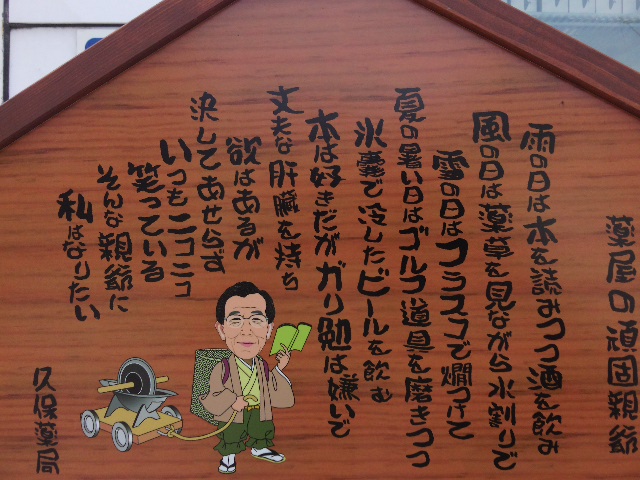 薬屋の頑固親爺
雨の日は本を読みつつ酒を飲み
風の日は薬草を見ながら水割りで
雪の日はフラスコで燗つけて
夏の暑い日はゴルフ道具を磨きつつ
氷嚢で冷したビールを飲む
本は好きだがガリ勉は嫌いで
丈夫な肝臓を持ち
欲はあるが
決してあせらず
いつもニコニコ
笑っている
そんな親爺に
私はなりたい
久保薬局